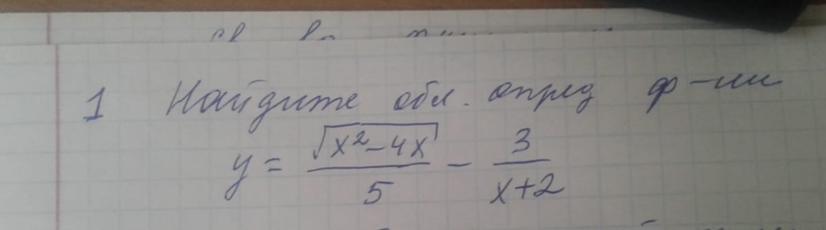 1 Найдите обл. опред ф-ии
y = √(x²-4x)/5 - 3/(x+2)